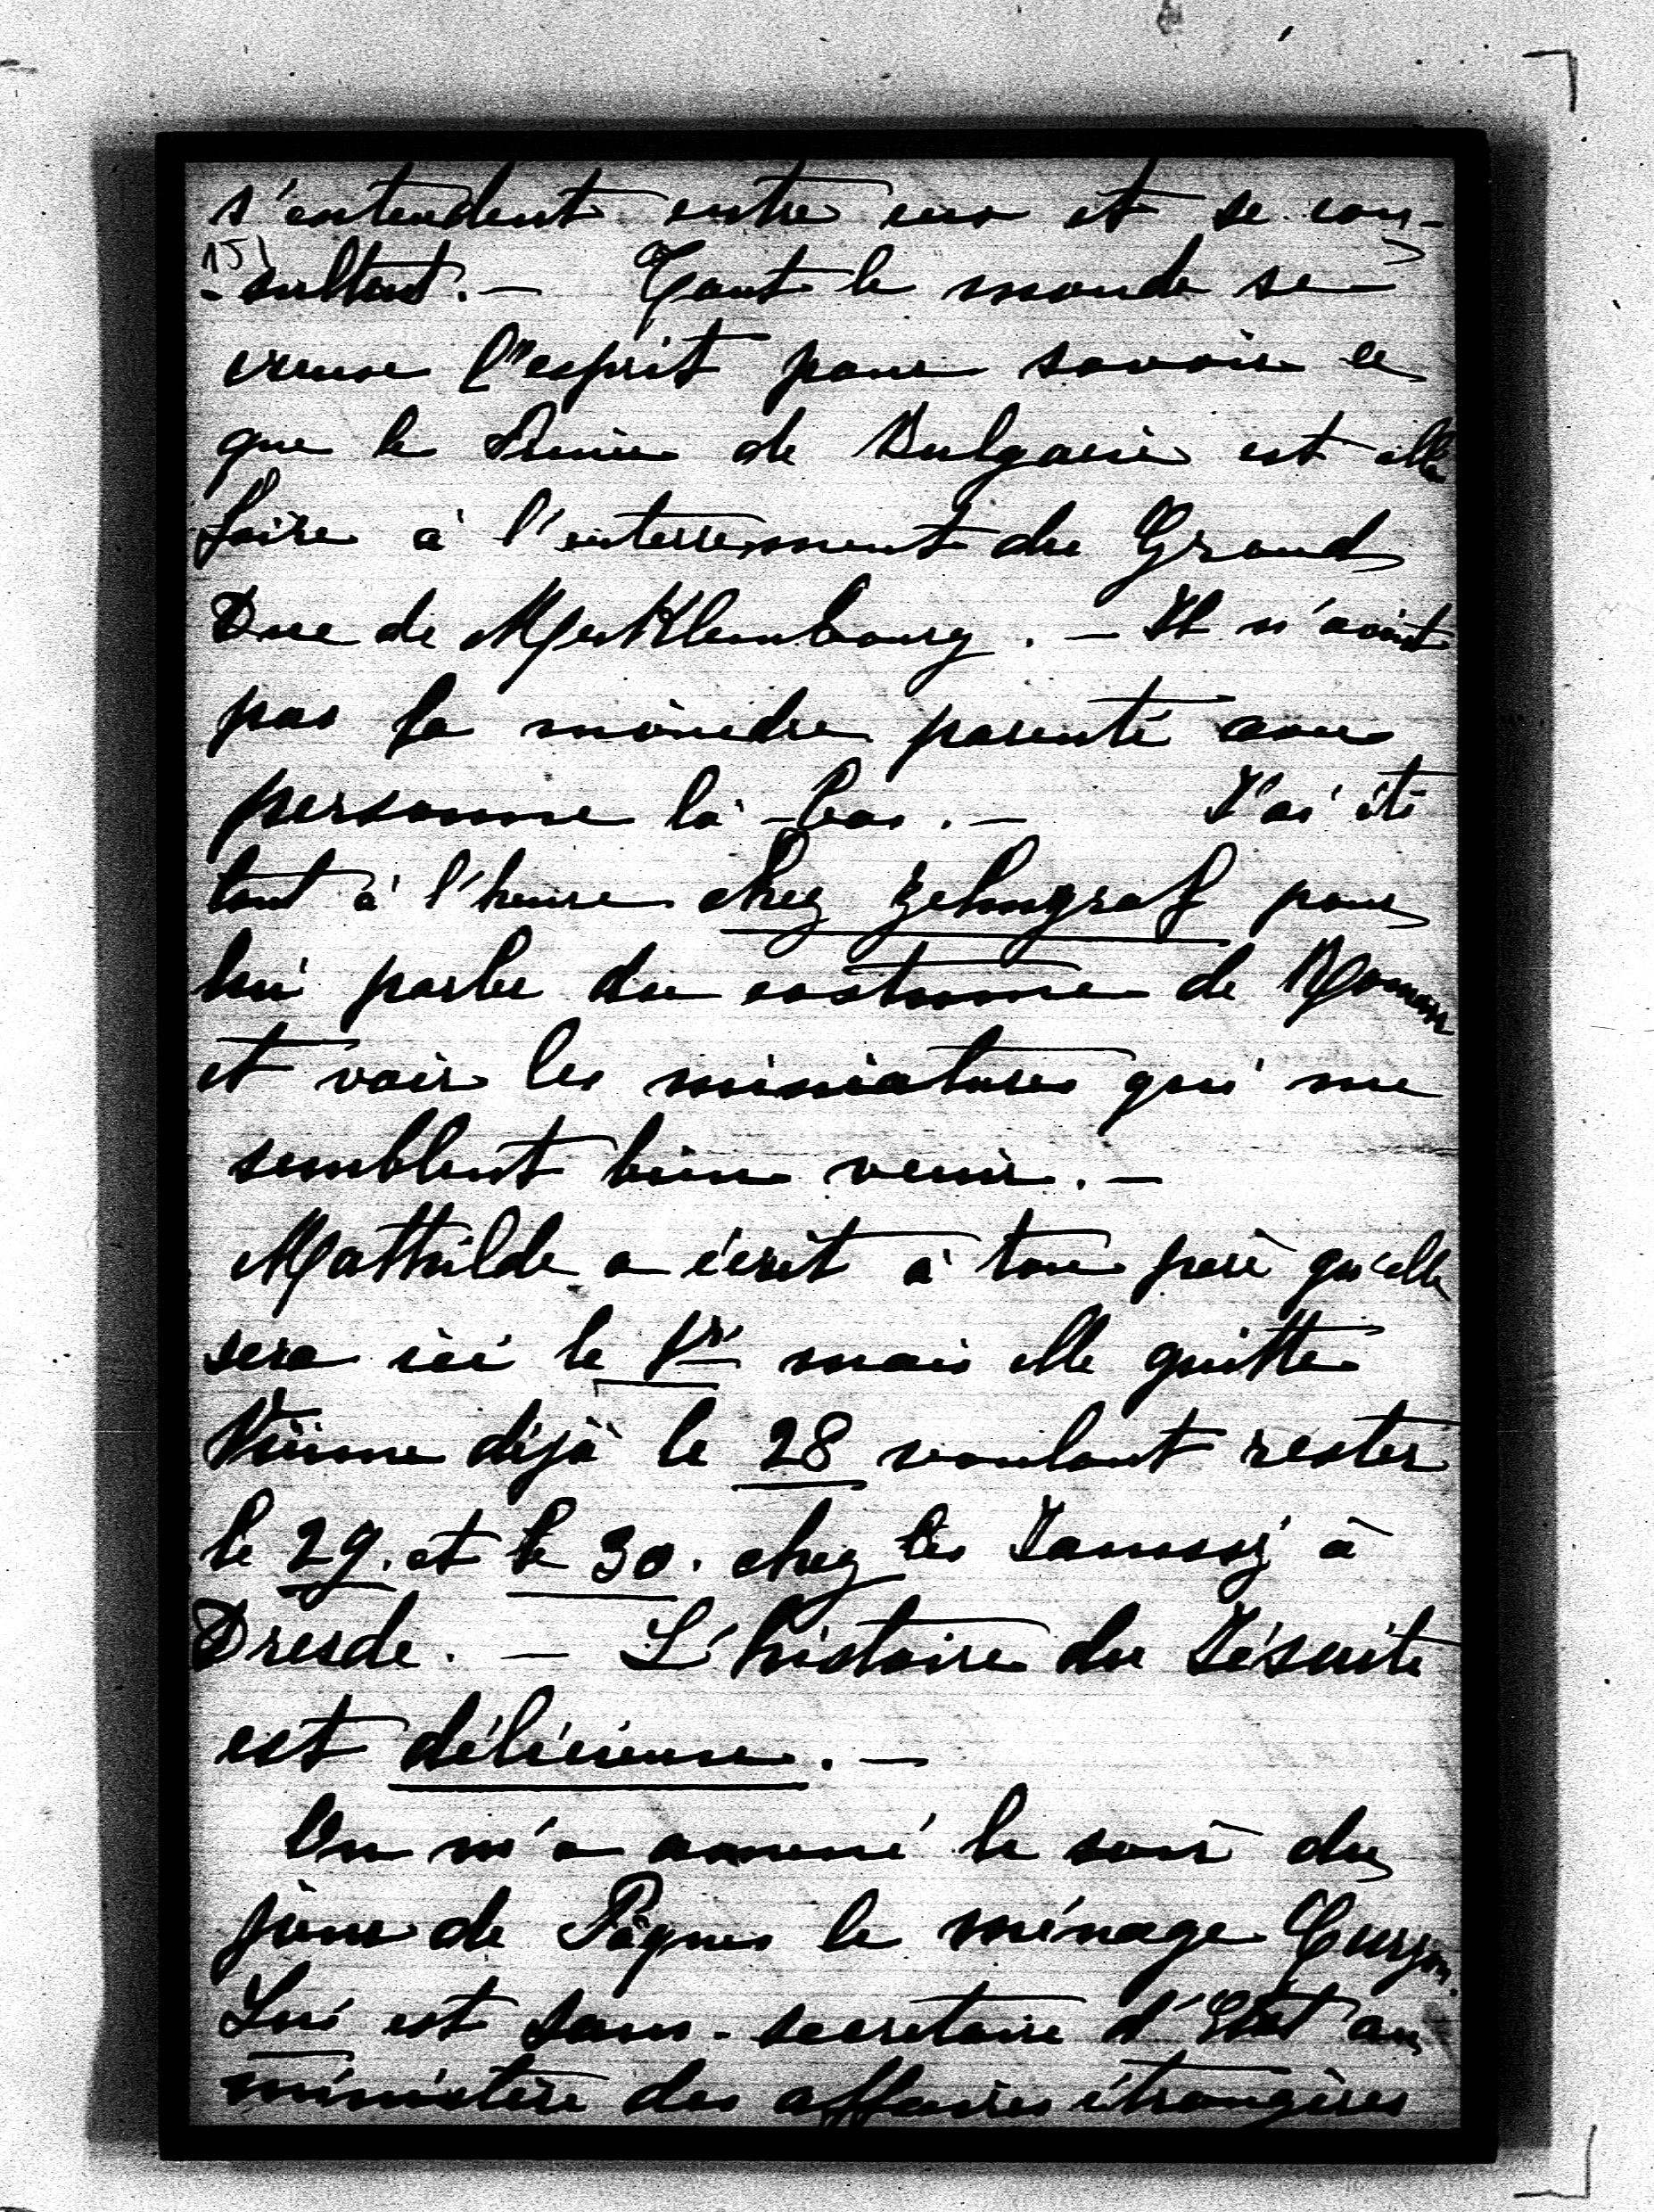 s'entendent entre eux et se con-
15)
-sultent. — Tout le monde se
creuse l'esprit pour savoir ce
que le Prince de Bulgarie est allé
faire à l'enterrement du Grand
Duc de Mecklembourg. — Il n'avait
pas la moindre parenté avec
personne là-bas. — J'ai été
tout à l'heure chez Zehngraf pour
lui parler du costume de
et voir les miniatures qui me
semblent bien venir. —
Mathilde a écrit à ton père qu'elle
sera ici le 1er mais elle quitte
Vienne déjà le 28 voulant rester
le 29. et le 30. chez les à
Dresde. — L'histoire du Jésuite
est délicieuse. —
On m'a amené le soir du
jour de Pâques le ménage Curzon.
Lui est sous-secretaire d'Etat au
ministère des affaires étrangères